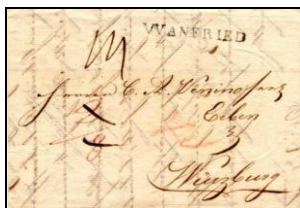 WANFRIED
Herren C. A. Venino
Erben
Würzburg